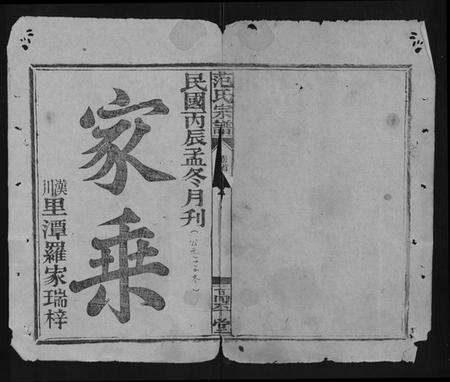 范氏宗譜
民國丙辰孟冬月刊
家乘
漢川
里潭羅家瑞梓